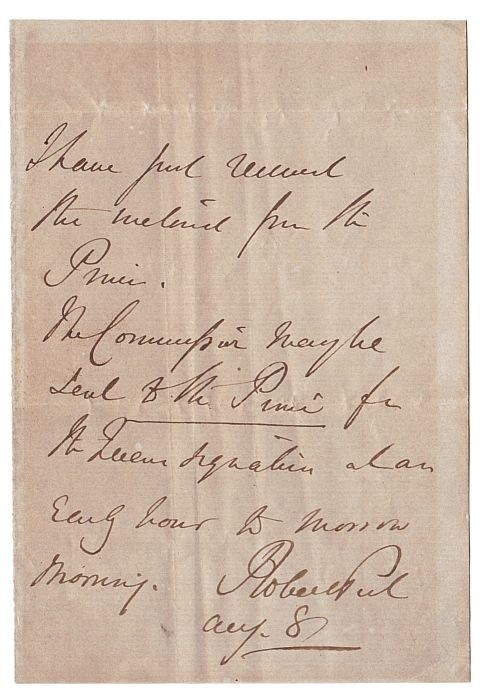 I have just received
the enclosed from the
Prince.
The Commission may be
sent to the Prince for
the Queens signature at an
Early hour to morrow
Morning. Robert Peel
Aug. 8